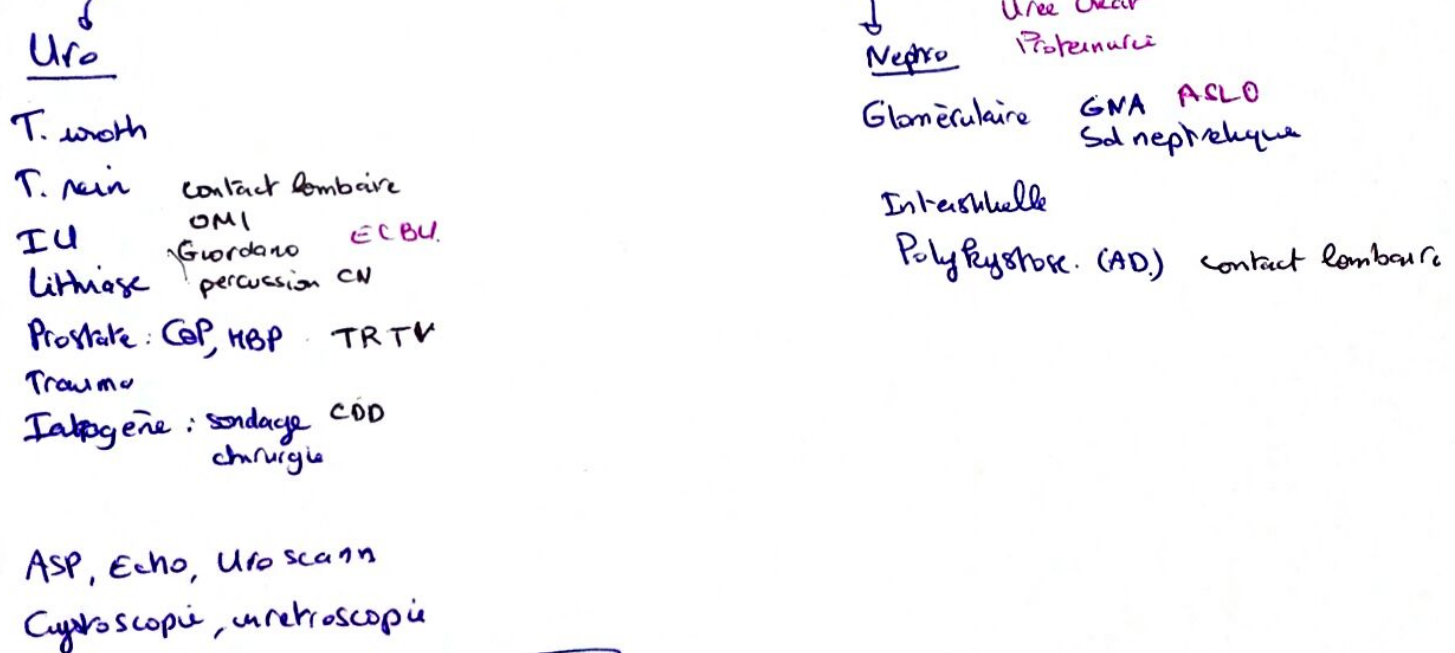 Uro
T. uroth
T. rein contact lombaire
OMI
IU Giordano ECBU.
Lithiase percussion CN
Prostate : CaP, HBP TR TV
Trauma
Iatrogène : sondage CDD
chirurgie
ASP, Echo, Uro scann
Cystoscopie, uretroscopie
Uree Creat
Nephro Proteinurie
Glomèrulaire GNA ASLO
Sd nephretique
Interstitielle
Polykystose. (AD.) contact lombaire